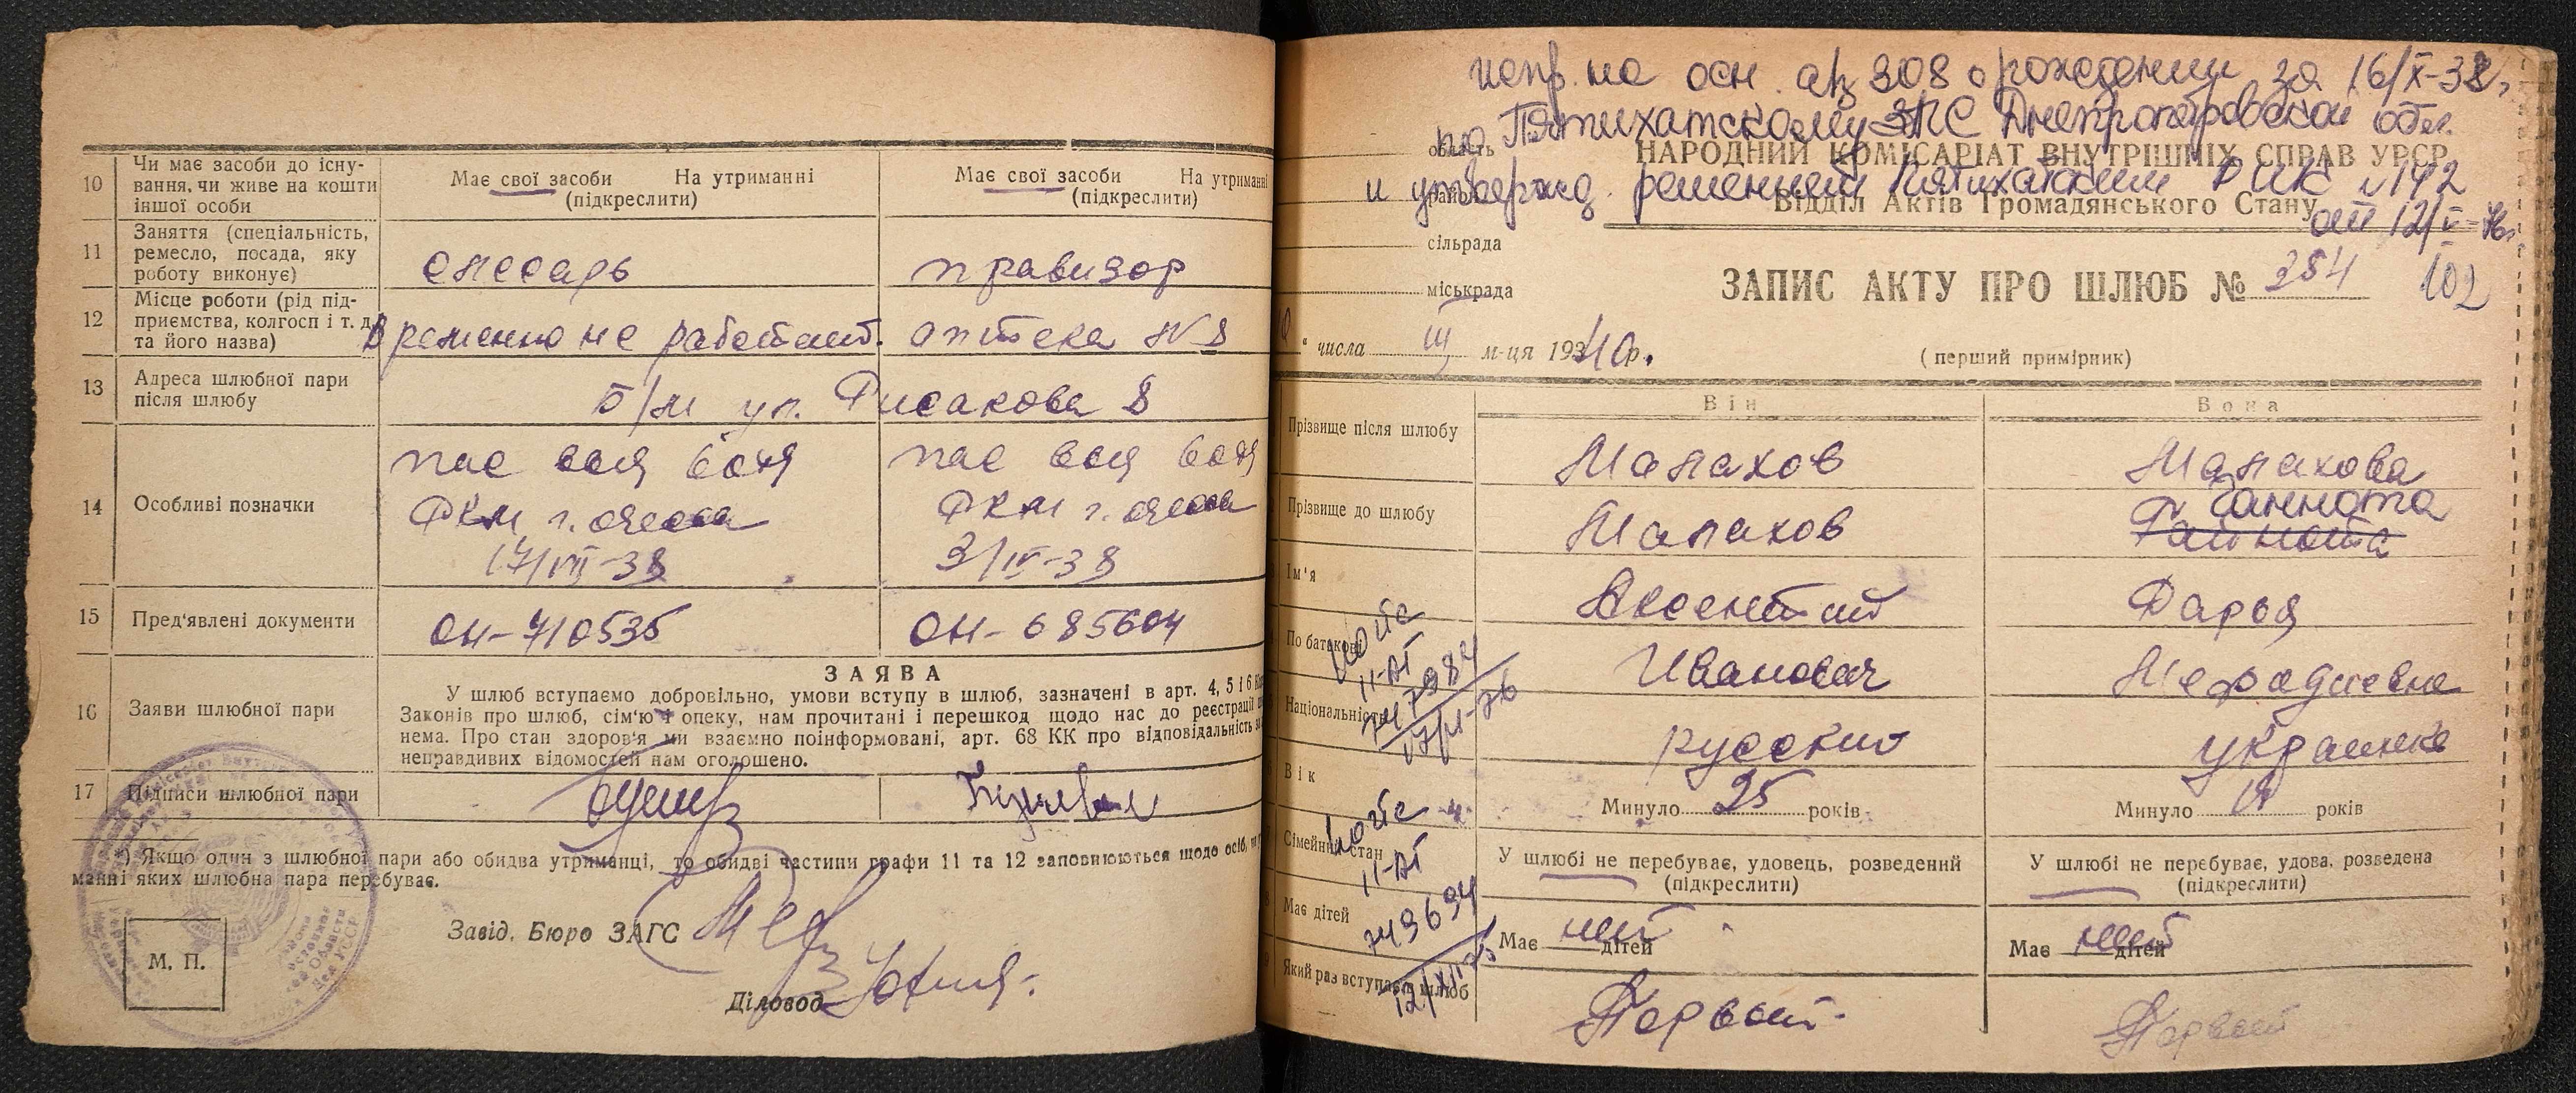 10 Чи має засоби до існу-
вання, чи живе на кошти
іншої особи
Має свої засоби На утриманні
(підкреслити)
Має свої засоби На утриманні
(підкреслити)
11 Заняття (спеціальність,
ремесло, посада, яку
роботу виконує)
слесарь
правизор
12 Місце роботи (рід під-
приємства, колгосп і т. д.
та його назва)
Временно не работает.
аптека № 8
13 Адреса шлюбної пари
після шлюбу
ул. 8
14 Особливі позначки
пас
РКМ г. одесса
17/VII-38
пас
РКМ г. одесса
3/IV-38
15 Пред'явлені документи
ОН-710535
ОН-685604
16 Заяви шлюбної пари
ЗАЯВА
У шлюб вступаємо добровільно, умови вступу в шлюб, зазначені в арт. 4, 5 і 6
Законів про шлюб, сім'ю і опеку, нам прочитані і перешкод щодо нас до реєстрації
нема. Про стан здоров'я ми взаємно поінформовані, арт. 68 КК про відповідальність за
неправдивих відомостей нам оголошено.
17 Підписи шлюбної пари
*) Якщо один з шлюбної пари або обидва утриманці, то обидві частини графи 11 та 12 заповнюються щодо осіб, на
манні яких шлюбна пара перебуває.
Завід. Бюро ЗАГС
М. П.
Діловод
испр. на осн. а/з 308 о рождении за 16/X-38г.
по Пятихатскому ЗАГС Днепропетровской обл.
и утвержд. решением Пятихатским РИК №
от
область
НАРОДНИЙ КОМІСАРІАТ ВНУТРІШНІХ СПРАВ УРСР
район
Відділ Актів Громадянського Стану
сільрада
міськрада
ЗАПИС АКТУ ПРО ШЛЮБ № 384
102
" числа III м-ця 1940р.
(перший примірник)
Він
Вона
Прізвище після шлюбу
Малахов
Малахова
Прізвище до шлюбу
Малахов
Ганнота
Ім'я
Аксентий
Дарья
По батькові
Иванович
Мефодиевна
Національність
русский
украинка
Вік
Минуло 25 років
Минуло років
Сімейний стан
У шлюбі не перебуває, удовець, розведений
(підкреслити)
У шлюбі не перебуває, удова, розведена
(підкреслити)
Має дітей
Має нет дітей
Має нет дітей
Який раз вступає в шлюб
Первый
Первый